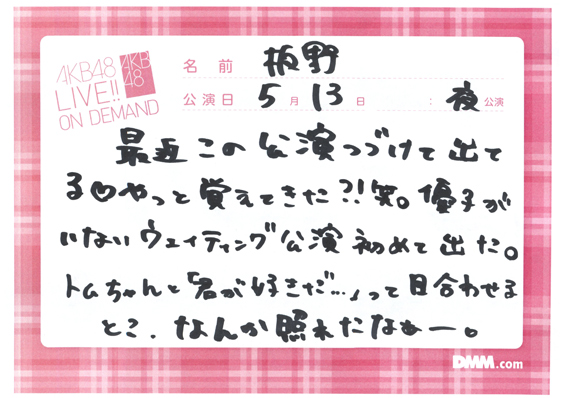 AKB48
LIVE!!
ON DEMAND
AKB
48
名前 板野
公演日 5月13日 : 夜公演
最近この公演つづけて出て
る♡やっと覚えてきた?!笑。優子が
いないウェイティング公演初めて出た。
トムちゃんと「君が好きだ…」って目合わせる
とこ、なんか照れたなぁー。
DMM.com